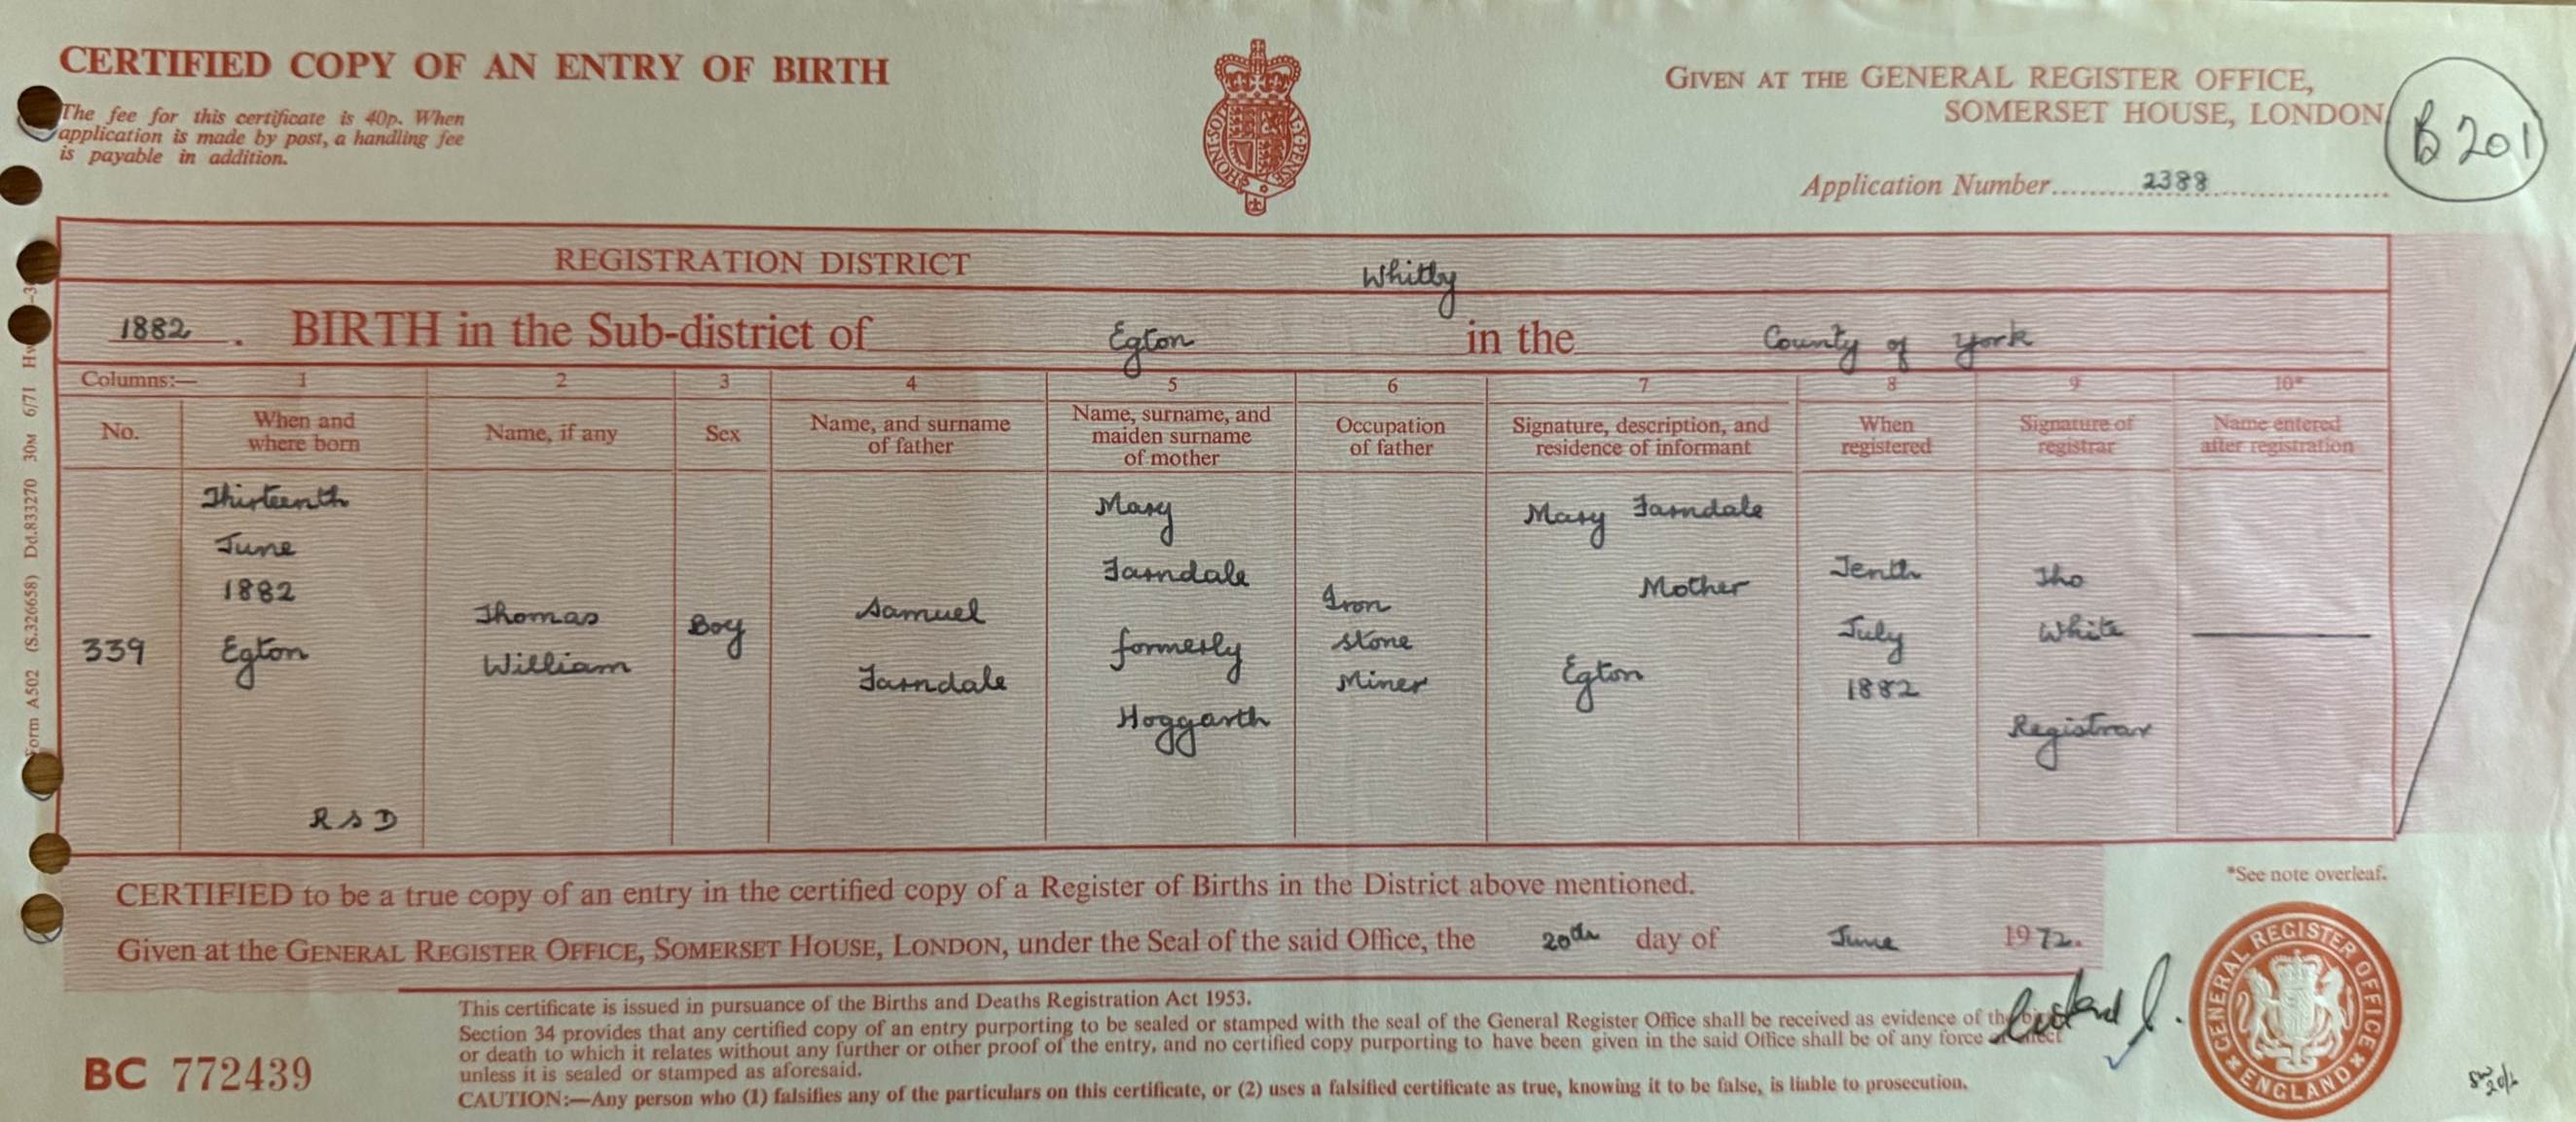 CERTIFIED COPY OF AN ENTRY OF BIRTH
The fee for this certificate is 40p. When
application is made by post, a handling fee
is payable in addition.
HONI·SOI Y·PENSE
GIVEN AT THE GENERAL REGISTER OFFICE,
SOMERSET HOUSE, LONDON
B 201
Application Number 2388
REGISTRATION DISTRICT Whitby
1882. BIRTH in the Sub-district of Egton in the County of York
Columns:— 1 2 3 4 5 6 7 8 9 10*
No.
When and
where born
Name, if any
Sex
Name, and surname
of father
Name, surname, and
maiden surname
of mother
Occupation
of father
Signature, description, and
residence of informant
When
registered
Signature of
registrar
Name entered
after registration
339
Thirteenth
June
1882
Egton
R S D
Thomas
William
Boy
Samuel
Farndale
Mary
Farndale
formerly
Hoggarth
Iron
stone
Miner
Mary Farndale
Mother
Egton
Tenth
July
1882
Tho
White
Registrar
CERTIFIED to be a true copy of an entry in the certified copy of a Register of Births in the District above mentioned.
Given at the GENERAL REGISTER OFFICE, SOMERSET HOUSE, LONDON, under the Seal of the said Office, the 20th day of June 1972.
*See note overleaf.
This certificate is issued in pursuance of the Births and Deaths Registration Act 1953.
Section 34 provides that any certified copy of an entry purporting to be sealed or stamped with the seal of the General Register Office shall be received as evidence of the
or death to which it relates without any further or other proof of the entry, and no certified copy purporting to have been given in the said Office shall be of any force
unless it is sealed or stamped as aforesaid.
CAUTION:—Any person who (1) falsifies any of the particulars on this certificate, or (2) uses a falsified certificate as true, knowing it to be false, is liable to prosecution.
BC 772439
GENERAL REGISTER OFFICE
ENGLAND
Form A502 (S.326658) Dd.833270 30M 6/71